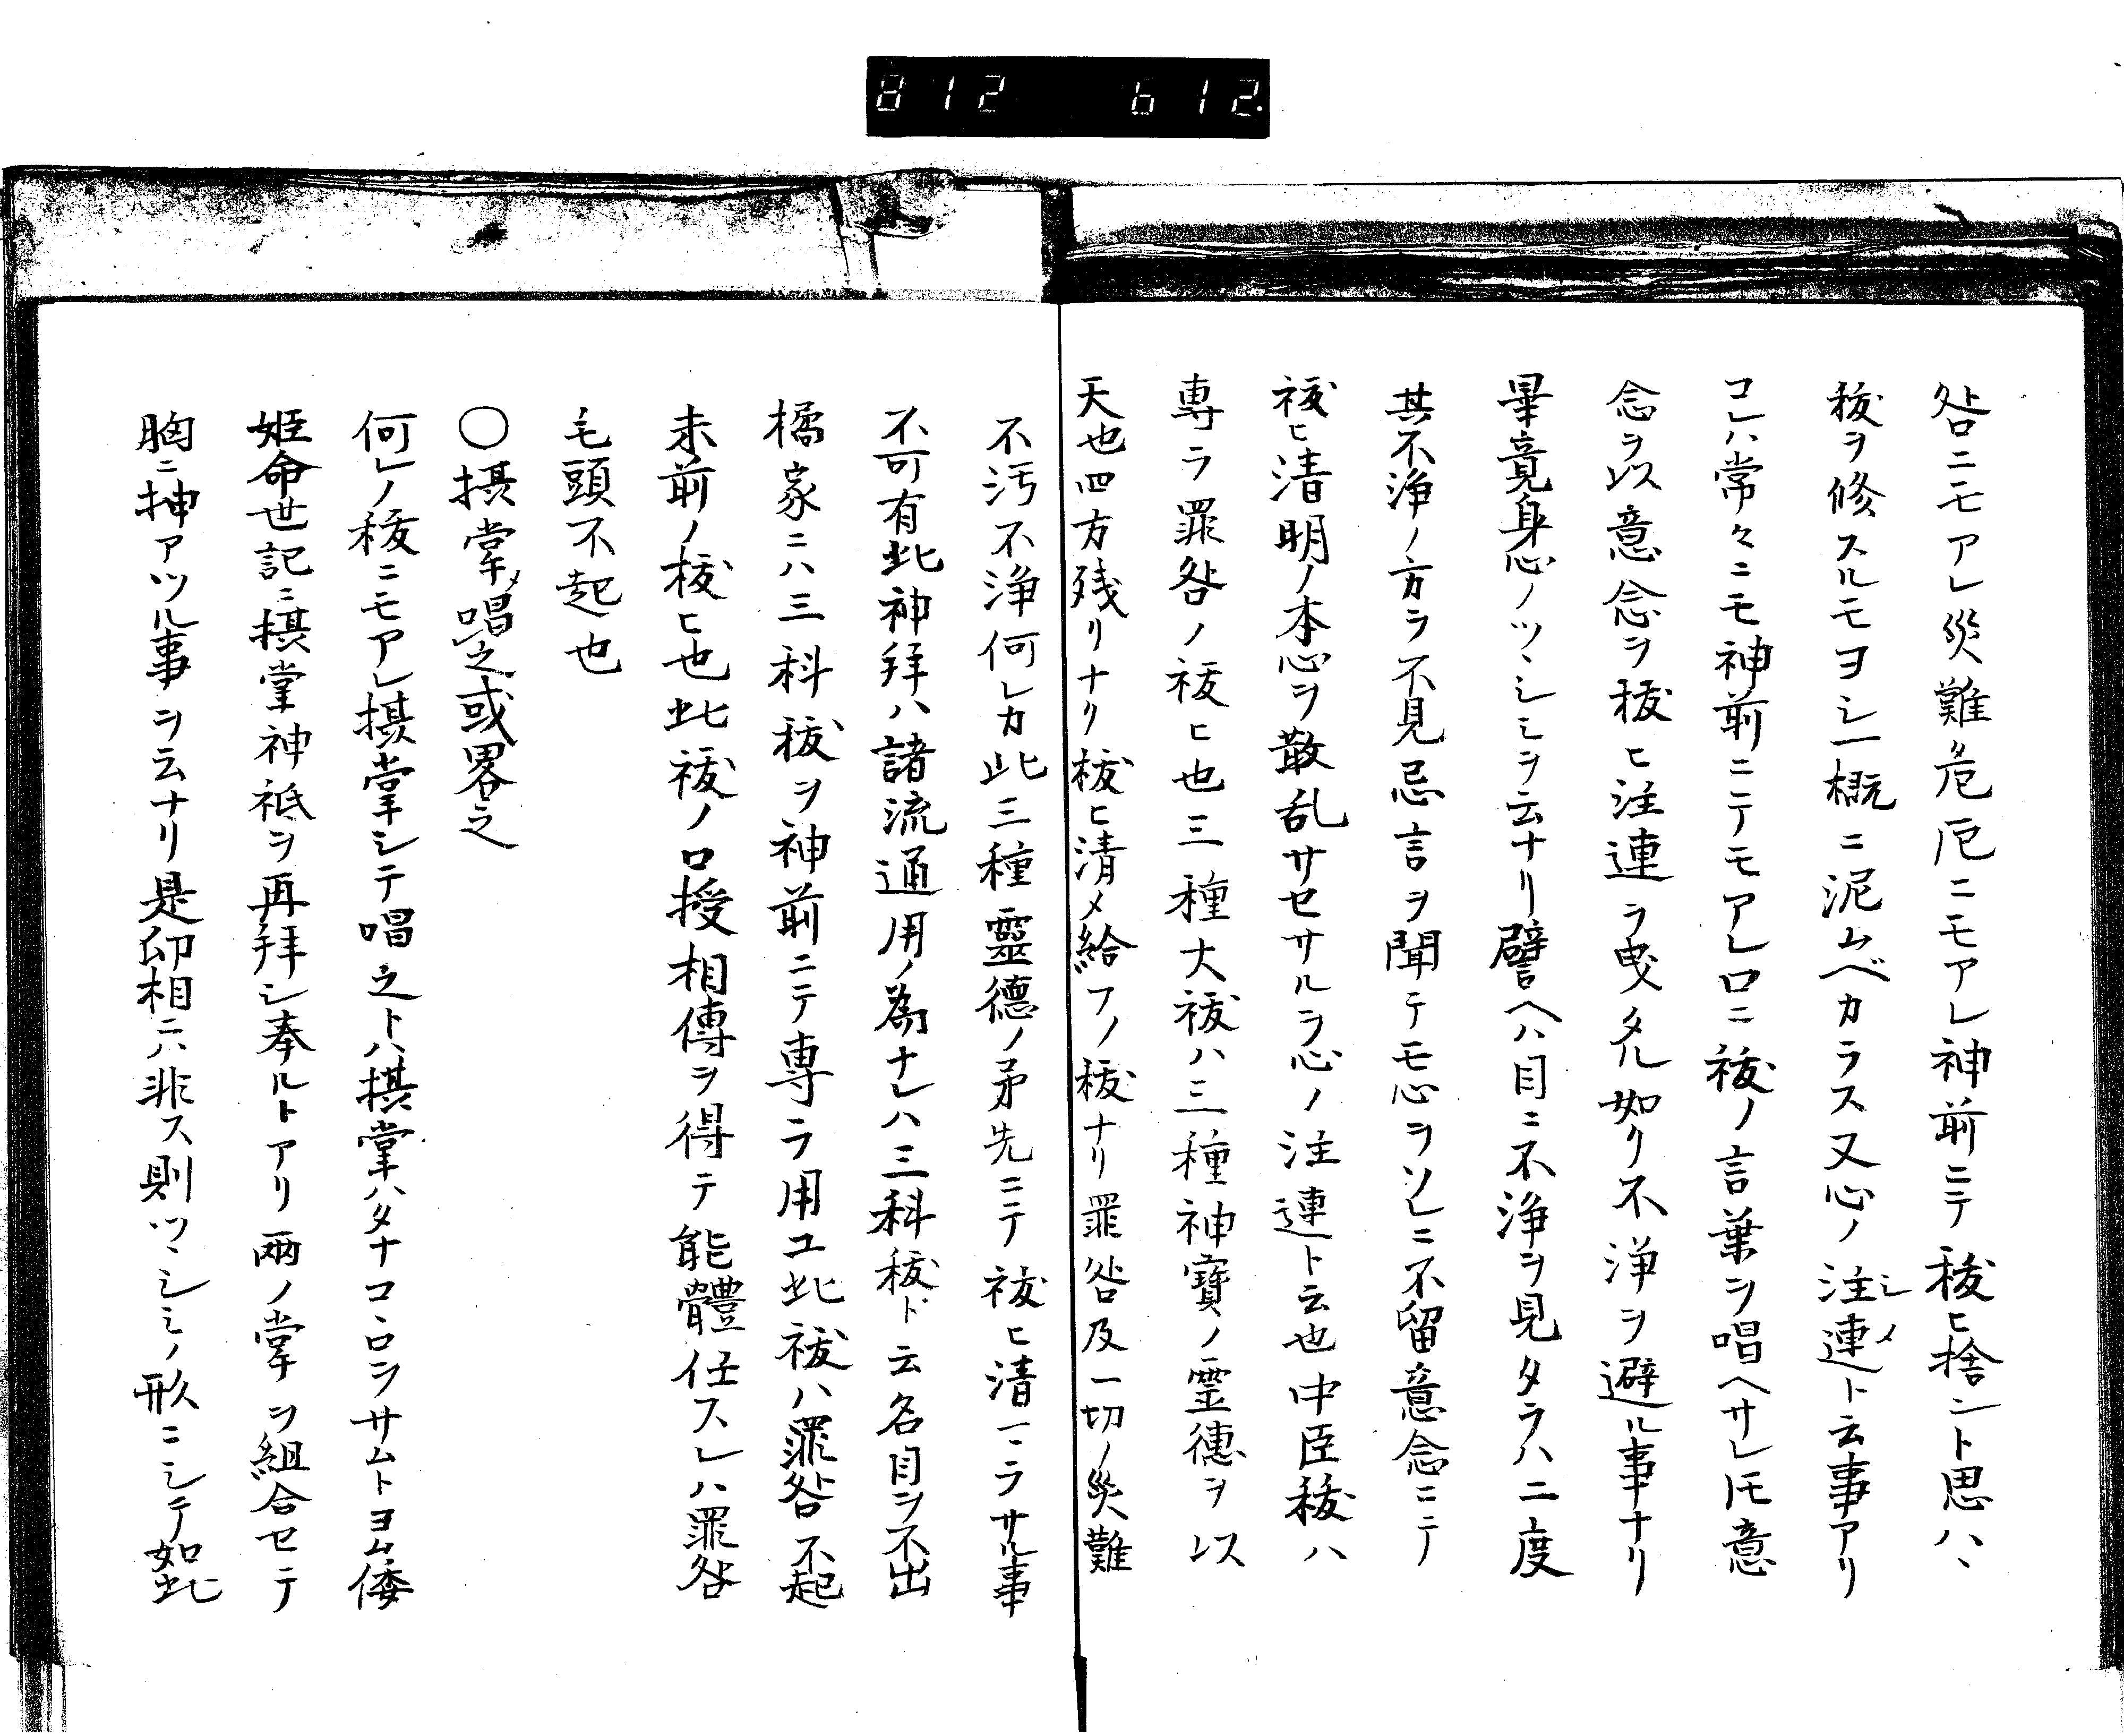 812 612
咎ニモアレ災難危厄ニモアレ神前ニテ祓ヒ捨ント思ハヽ
祓ヲ修スルモヨシ一概ニ泥ムベカラス又心ノ注連シメト云事アリ
コレハ常々ニモ神前ニテモアレ口ニ祓ノ言葉ヲ唱ヘサレ𪜈意
念ヲ以意念ヲ祓ヒ注連ヲ曳タル如ク不浄ヲ避ル事ナリ
畢竟身心ノツヽシミヲ云ナリ譬ヘハ目ニ不浄ヲ見タラハ二度
其不浄ノ方ヲ不見忌言ヲ聞テモ心ヲソレニ不留意念ニテ
祓ヒ清明ノ本心ヲ散乱サセサルヲ心ノ注連ト云也中臣祓ハ
専ラ罪咎ノ祓ヒ也三種大祓ハ三種神寳ノ霊德ヲ以
天也四方残リナク祓ヒ清メ給フノ祓ナリ罪咎及一切ノ災難
不汚不浄何レカ此三種靈德ノ矛先ニテ祓ヒ清マヽラサル事
不可有此神拜ハ諸流通用ノ為ナレハ三科祓ト云名目ヲ不出
橘家ニハ三科祓ヲ神前ニテ専ラ用ユ此祓ハ罪咎不起
未前ノ祓ヒ也此祓ノ口授相傳ヲ得テ能體任スレハ罪咎
毛頭不起也
〇摂掌メ唱之或畧之
何レノ祓ニモアレ摂掌シテ唱之トハ摂掌ハタナコヽロヲサムトヨム倭
姫命世記ニ摂掌神祇ヲ再拜シ奉ルトアリ兩ノ掌ヲ組合セテ
胸ニ抻アツル事ヲ云ナリ是印相ニハ非ス則ツヽシミノ形ニシテ如此